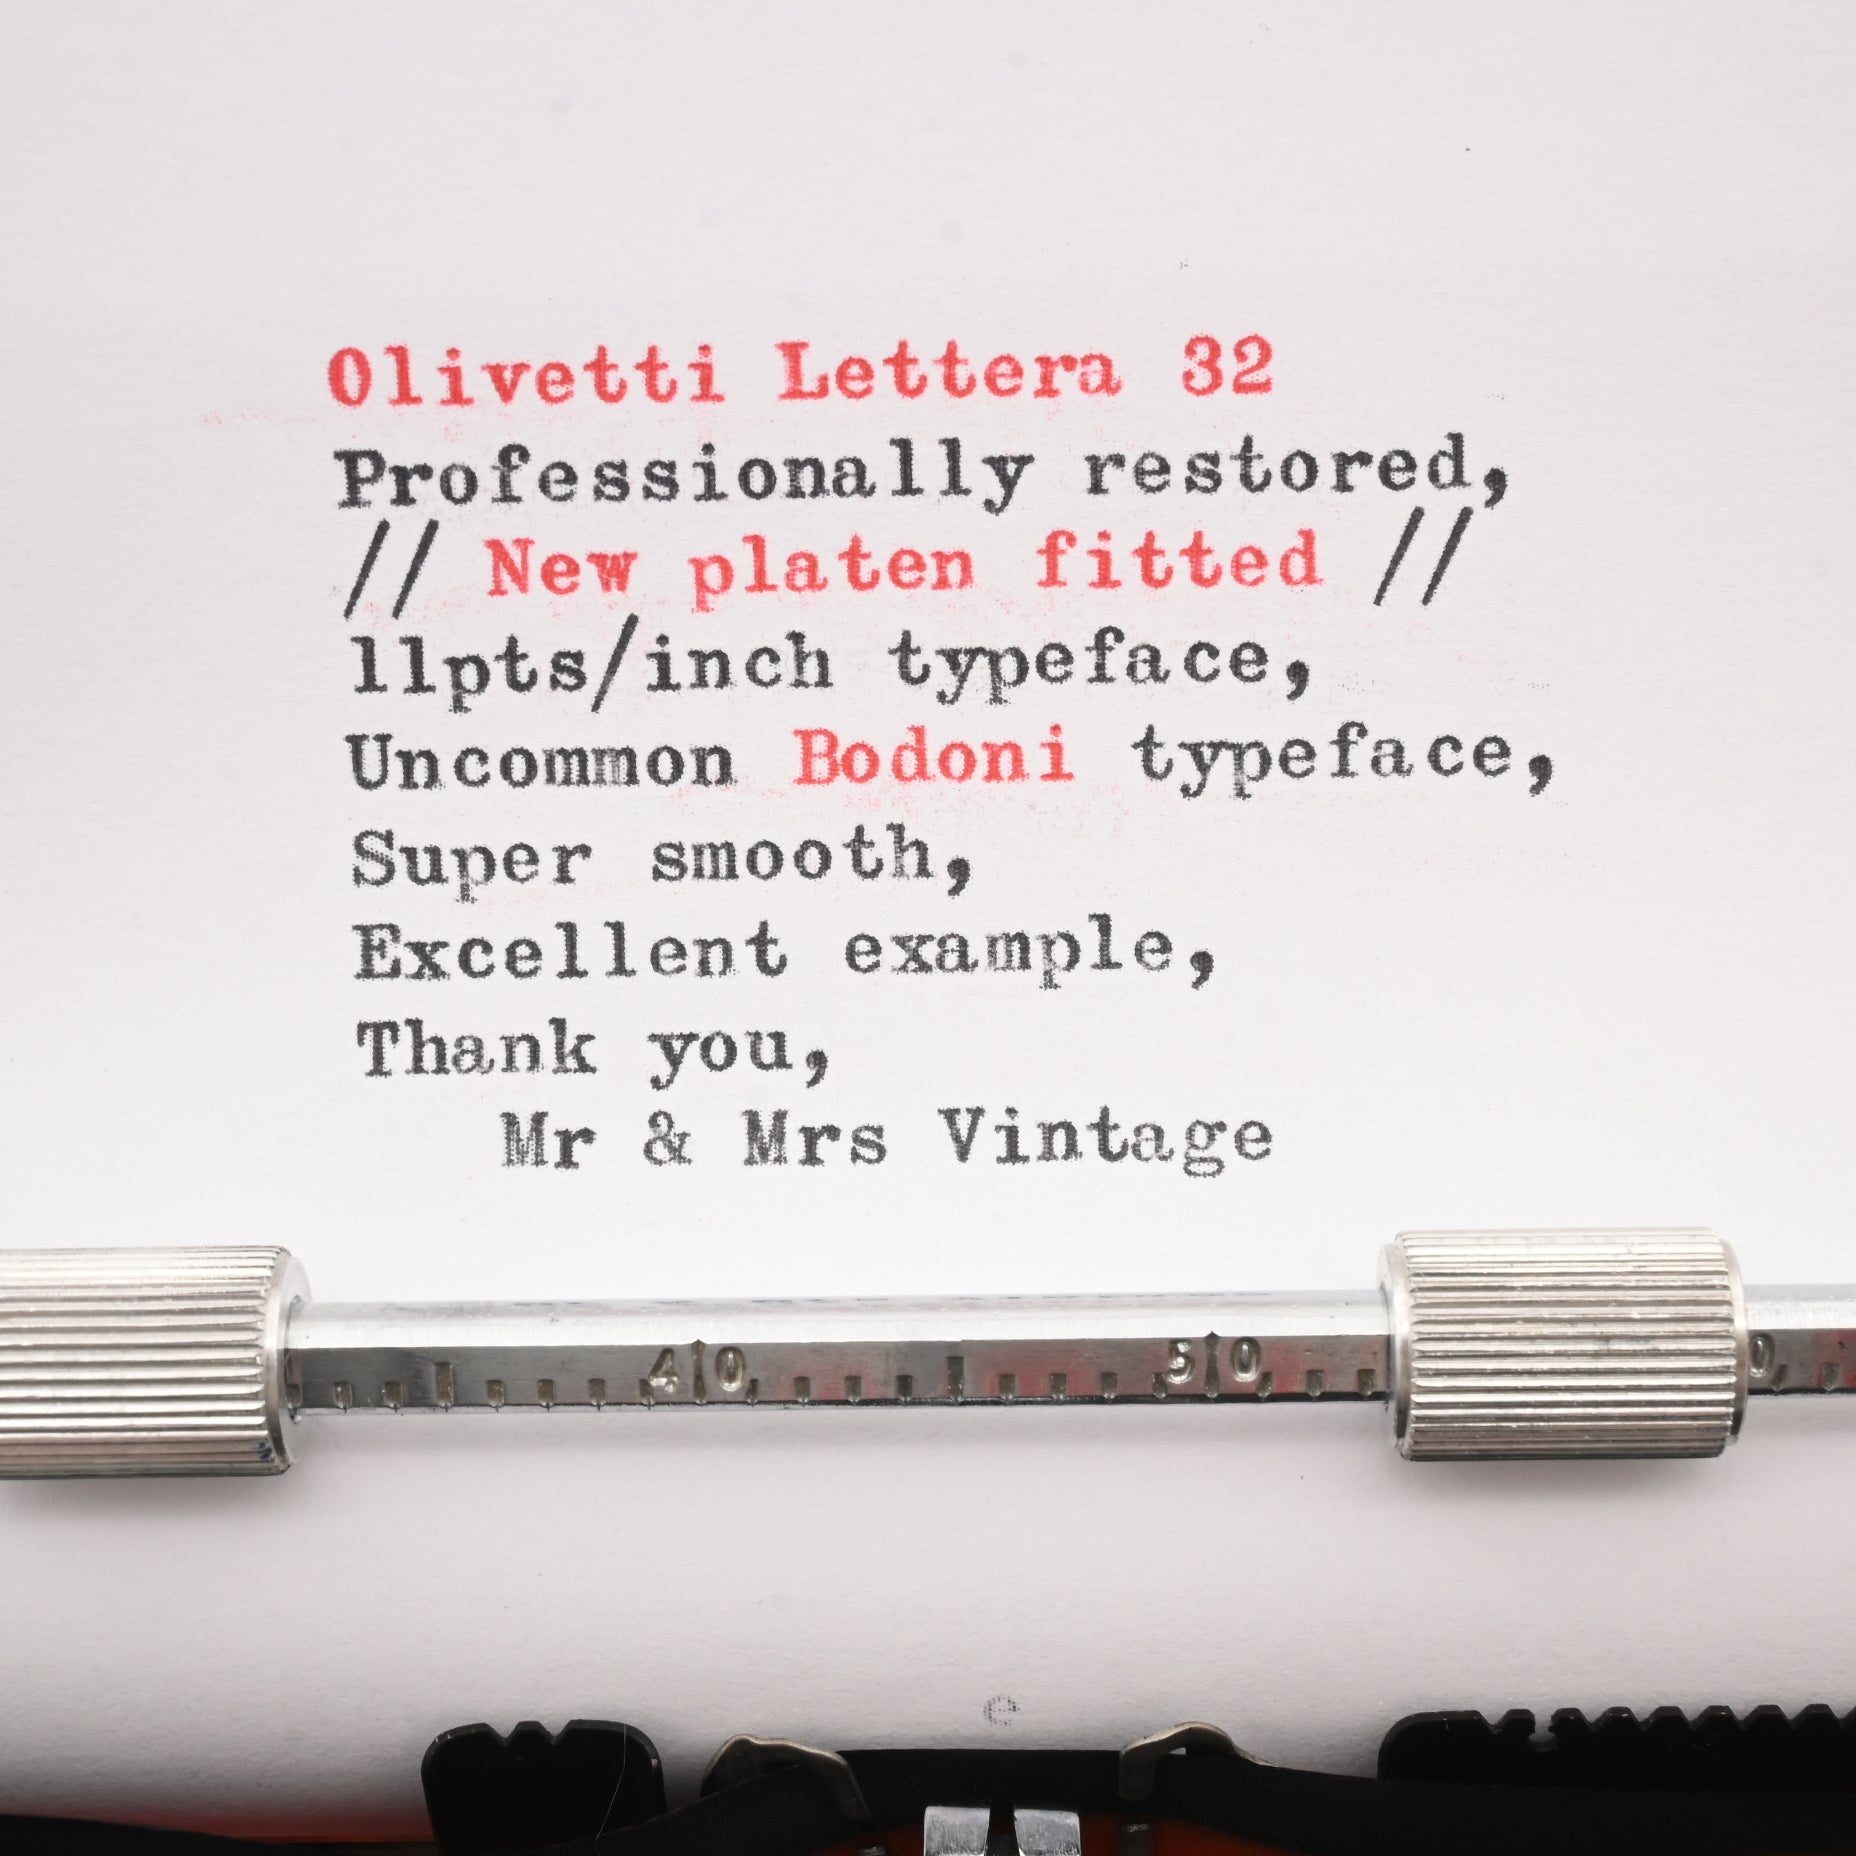 Olivetti Lettera 32
Professionally restored,
// New platen fitted //
11pts/inch typeface,
Uncommon Bodoni typeface,
Super smooth,
Excellent example,
Thank you,
Mr & Mrs Vintage
40 50 0
e